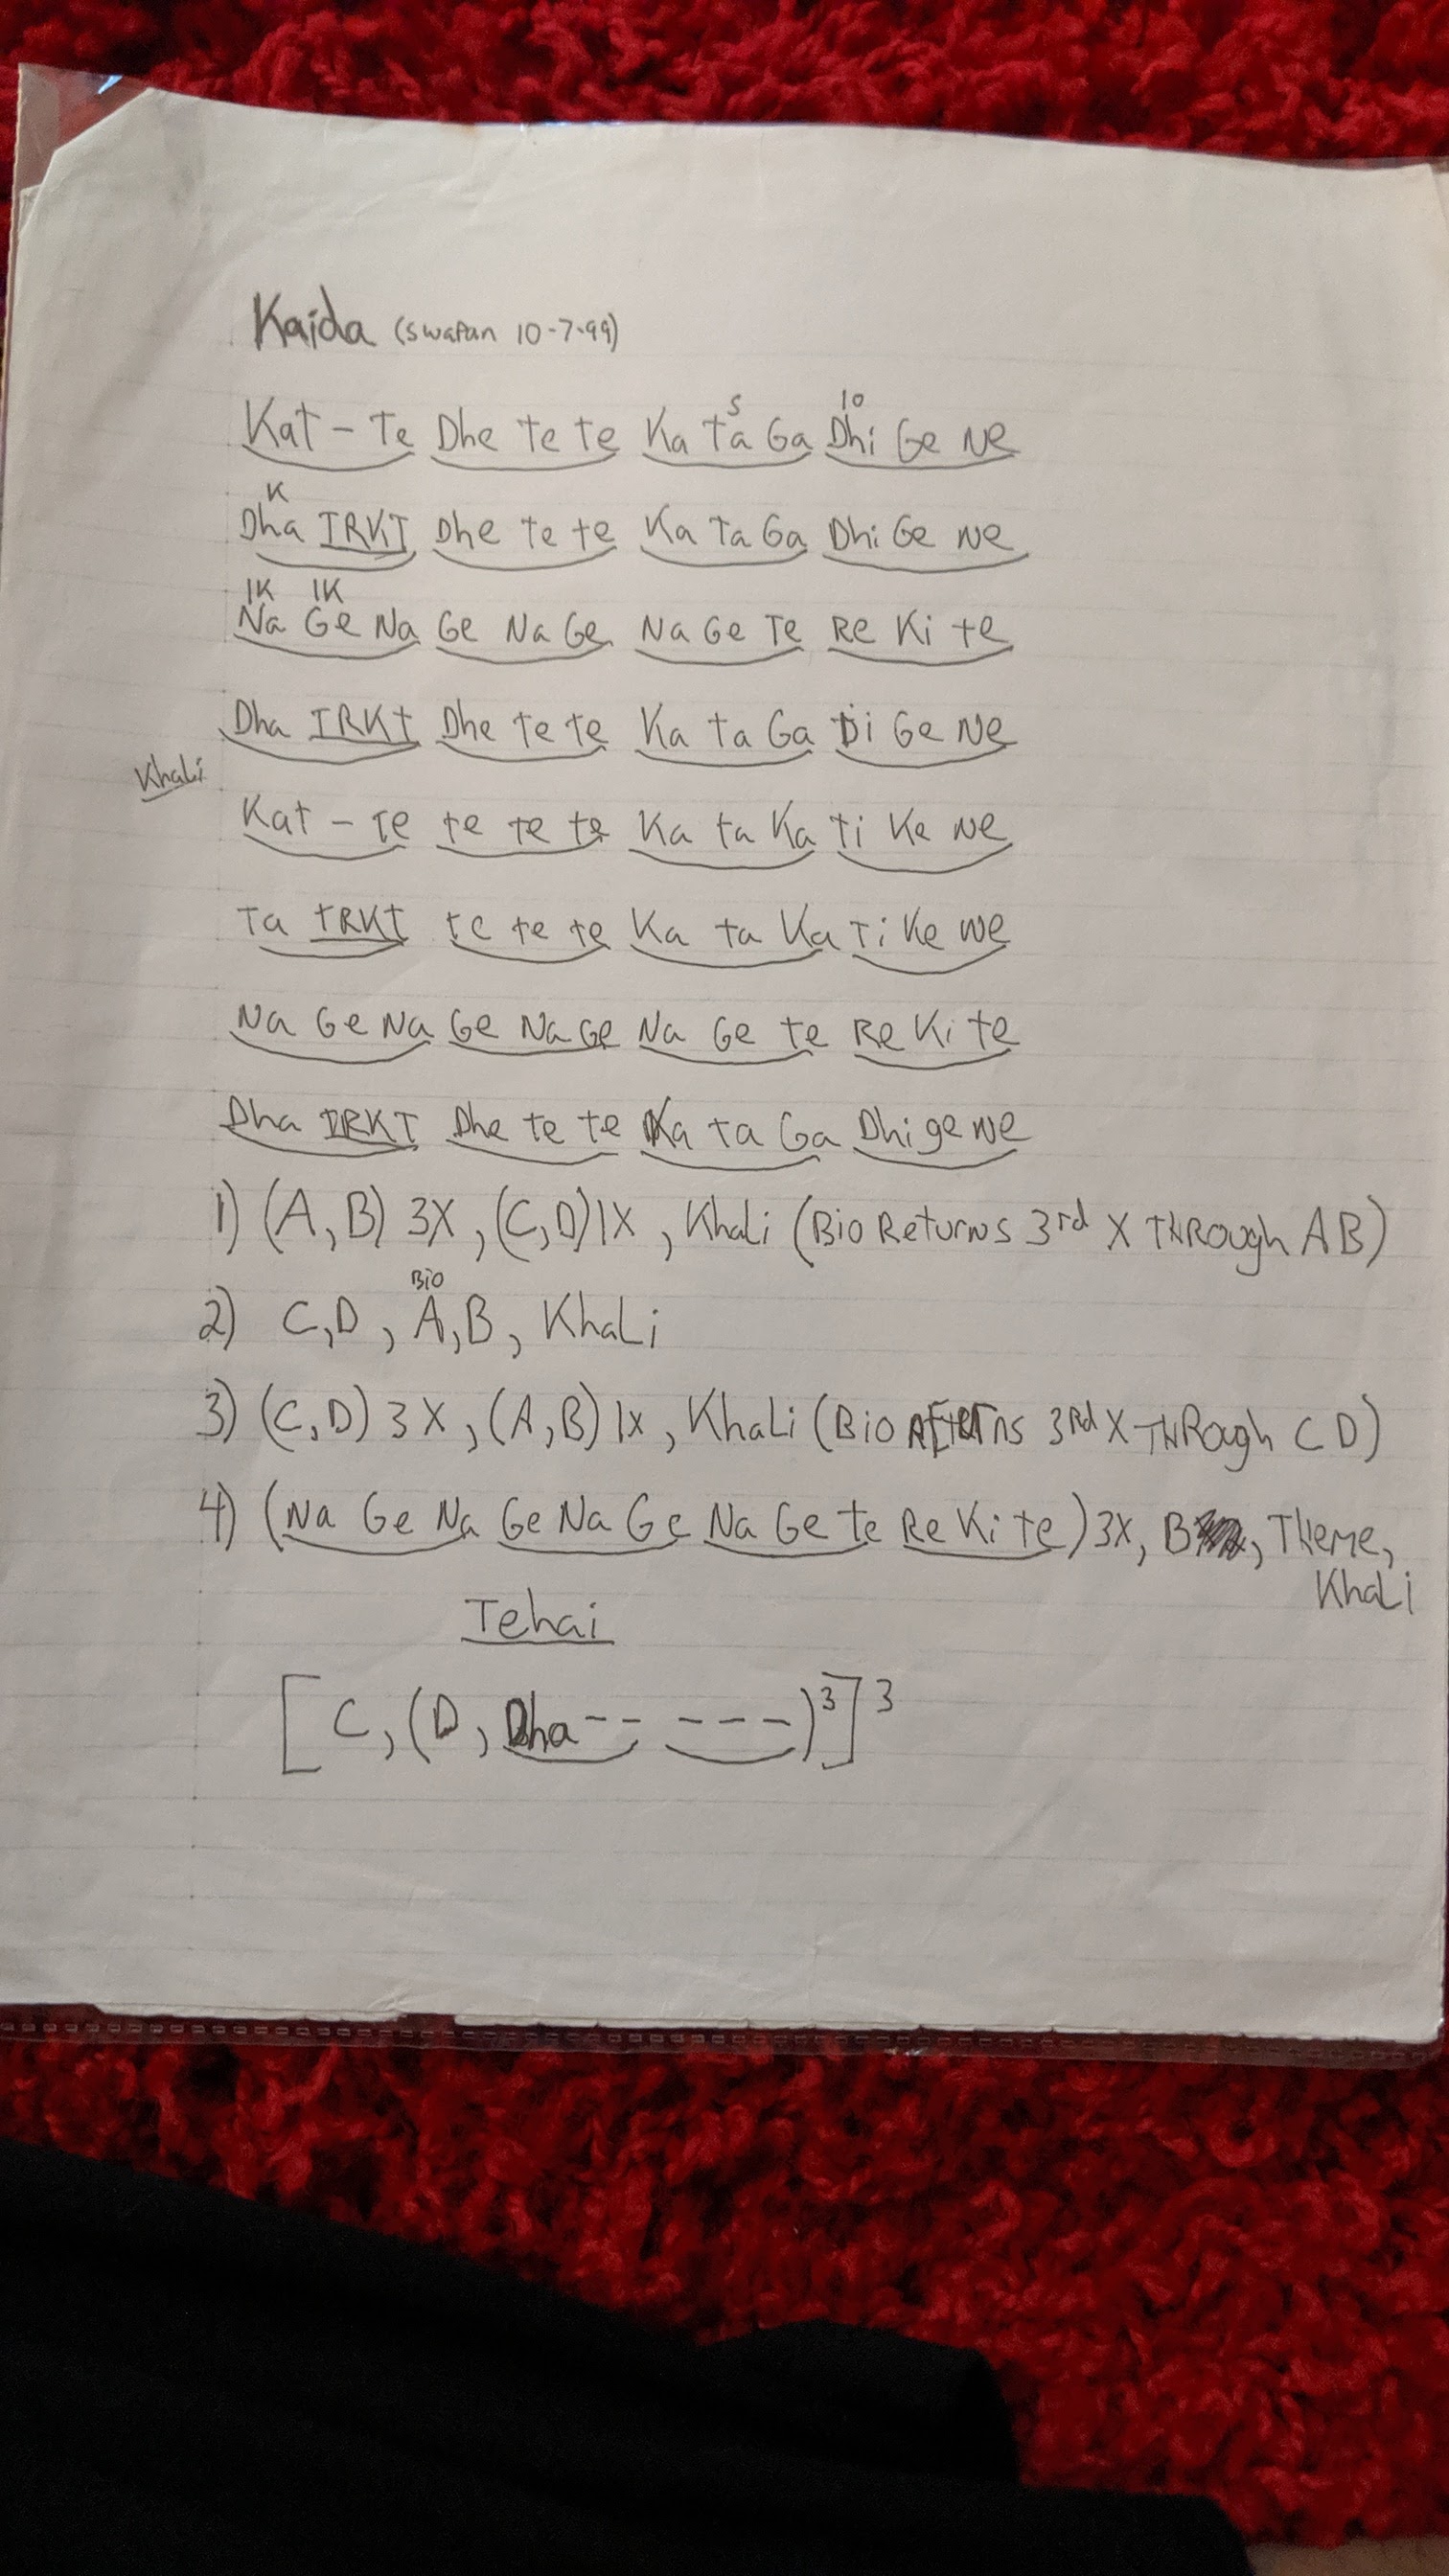 Kaida (Swapan 10-7-99)
S 10
Kat - Te Dhe te te Ka Ta Ga Dhi Ge Ne
K
Dha TRKT Dhe te te Ka Ta Ga Dhi Ge Ne
1K 1K
Na Ge Na Ge Na Ge Na Ge Te Re Ki te
Dha TRKT Dhe te te Ka ta Ga Di Ge Ne
Khali
Kat - Te te te te Ka ta Ka ti Ke Ne
Ta TRKT te te te Ka ta Ka Ti Ke Ne
Na Ge Na Ge Na Ge Na Ge te Re Ki te
Dha TRKT Dhe te te Ka ta Ga Dhi ge Ne
1) (A, B) 3X, (C, D) 1X, Khali (Bio Returns 3rd X THRough AB)
Bio
2) C, D, A, B, KhaLi
3) (C, D) 3X, (A, B) 1x, KhaLi (Bio 3Rd X THRough CD)
4) (Na Ge Na Ge Na Ge Na Ge te Re Ki te) 3X, B, Theme,
KhaLi
Tehai
[C, (D, Dha - - - - -)³]³